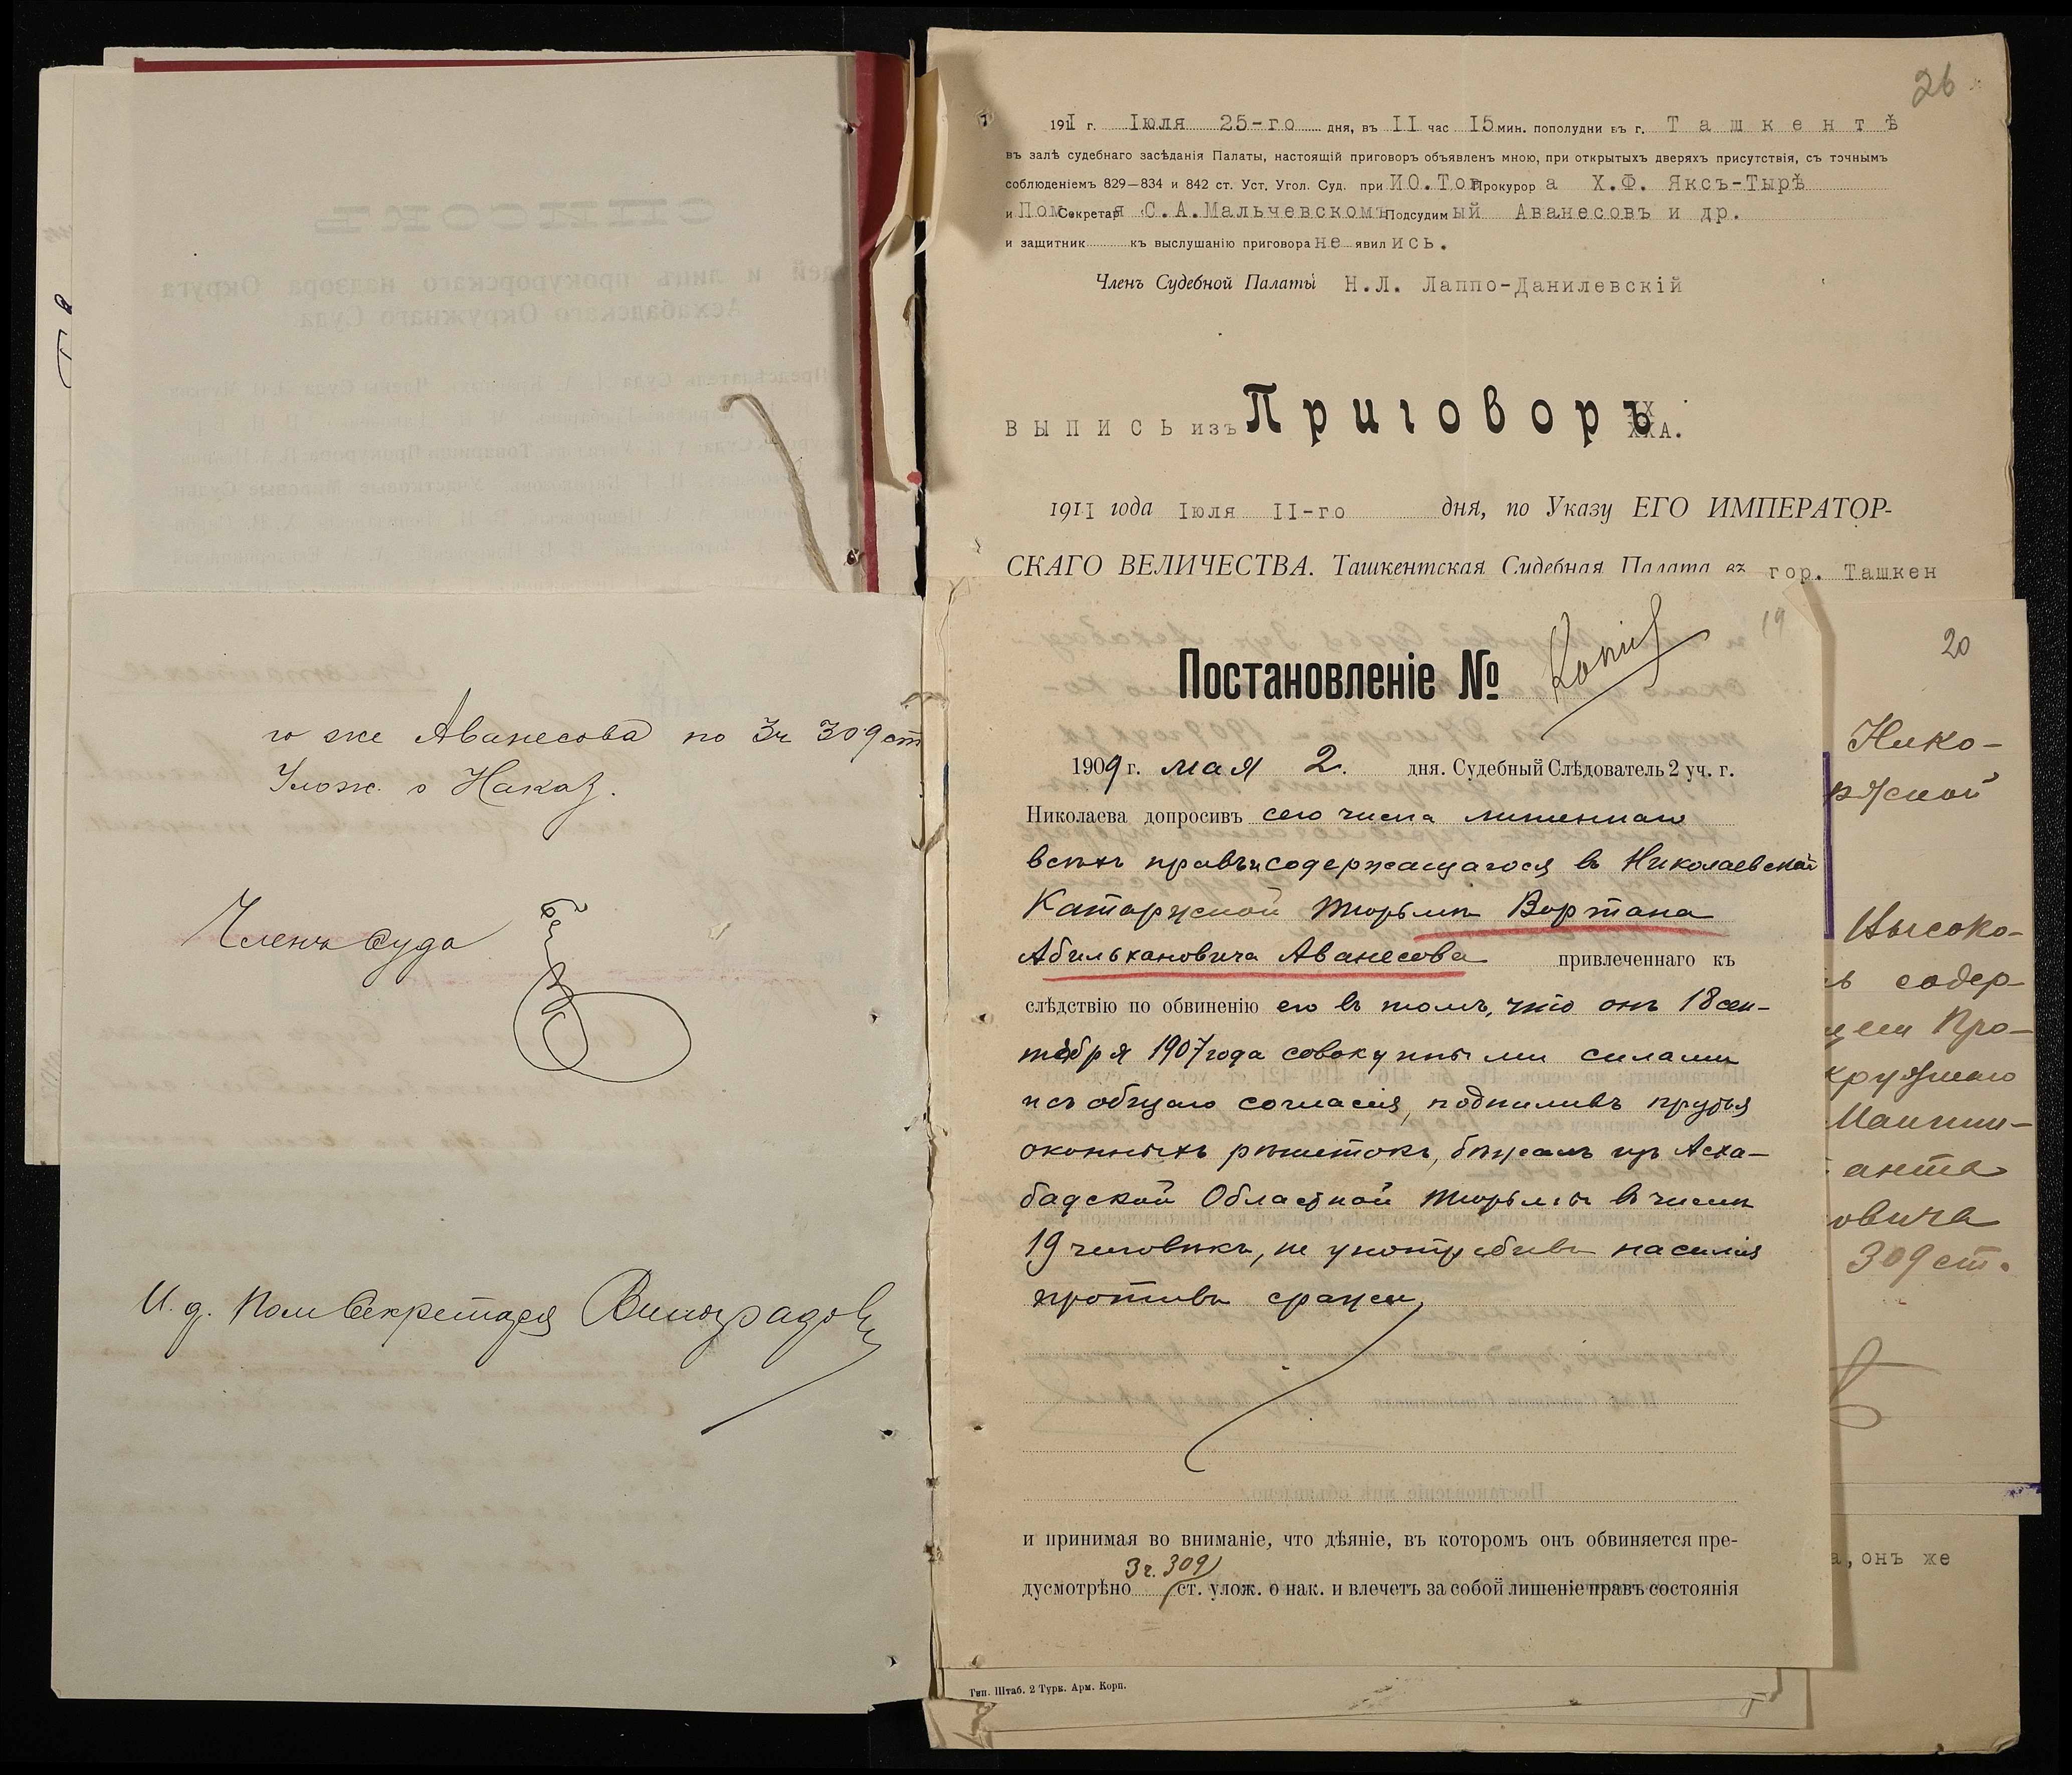 го же Аванесова по 3ч 309 ст
Улож. о Наказ.
Членъ Суда
И. д. Пом Секретаря Виноградовъ
26
1911 г. Іюля 25-го дня, въ 11 час 15 мин. пополудни въ г. Ташкентѣ
въ залѣ судебнаго засѣданія Палаты, настоящій приговоръ объявленъ мною, при открытыхъ дверяхъ присутствія, съ точнымъ
соблюденіемъ 829—834 и 842 ст. Уст. Угол. Суд. при И.О.Тов Прокурора Х.Ф. Яксъ-Тырѣ
и Пом. Секретаря С.А.Мальчевскомъ Подсудимый Аванесовъ и др.
и защитник къ выслушанію приговора не явились.
Членъ Судебной Палаты Н.Л. Лаппо-Данилевскій
ВЫПИСЬ изъ Приговоръ ХХА.
1911 года Іюля 11-го дня, по Указу ЕГО ИМПЕРАТОР-
СКАГО ВЕЛИЧЕСТВА. Ташкентская Судебная Палата въ гор. Ташкен
19
Постановленіе № Копія
1909 г. мая 2. дня. Судебный Слѣдователь 2 уч. г.
Николаева допросивъ сего числа лишеннаго
всѣхъ правъ и содержащагося въ Николаевской
Каторжной тюрьмѣ Вартана
Абильхановича Аванесова привлеченнаго къ
слѣдствію по обвиненію его въ томъ, что онъ 18 сен-
тября 1907 года совокупными силами
и съ общаго согласія, подпиливъ прутья
оконныхъ рѣшетокъ, бѣжалъ изъ Асха-
бадской Областной тюрьмы въ числѣ
19 человѣкъ, не употребивъ насилія
противъ стражи,
и принимая во вниманіе, что дѣяніе, въ которомъ онъ обвиняется пре-
дусмотрѣно 3 ч. 309 ст. улож. о нак. и влечетъ за собой лишеніе правъ состоянія
Тип. Штаб. 2 Турк. Арм. Корп.
20
Нико-
ржской
Высоко-
содер-
Про-
кружнаго
анта
овича
309 ст.
а, онъ же